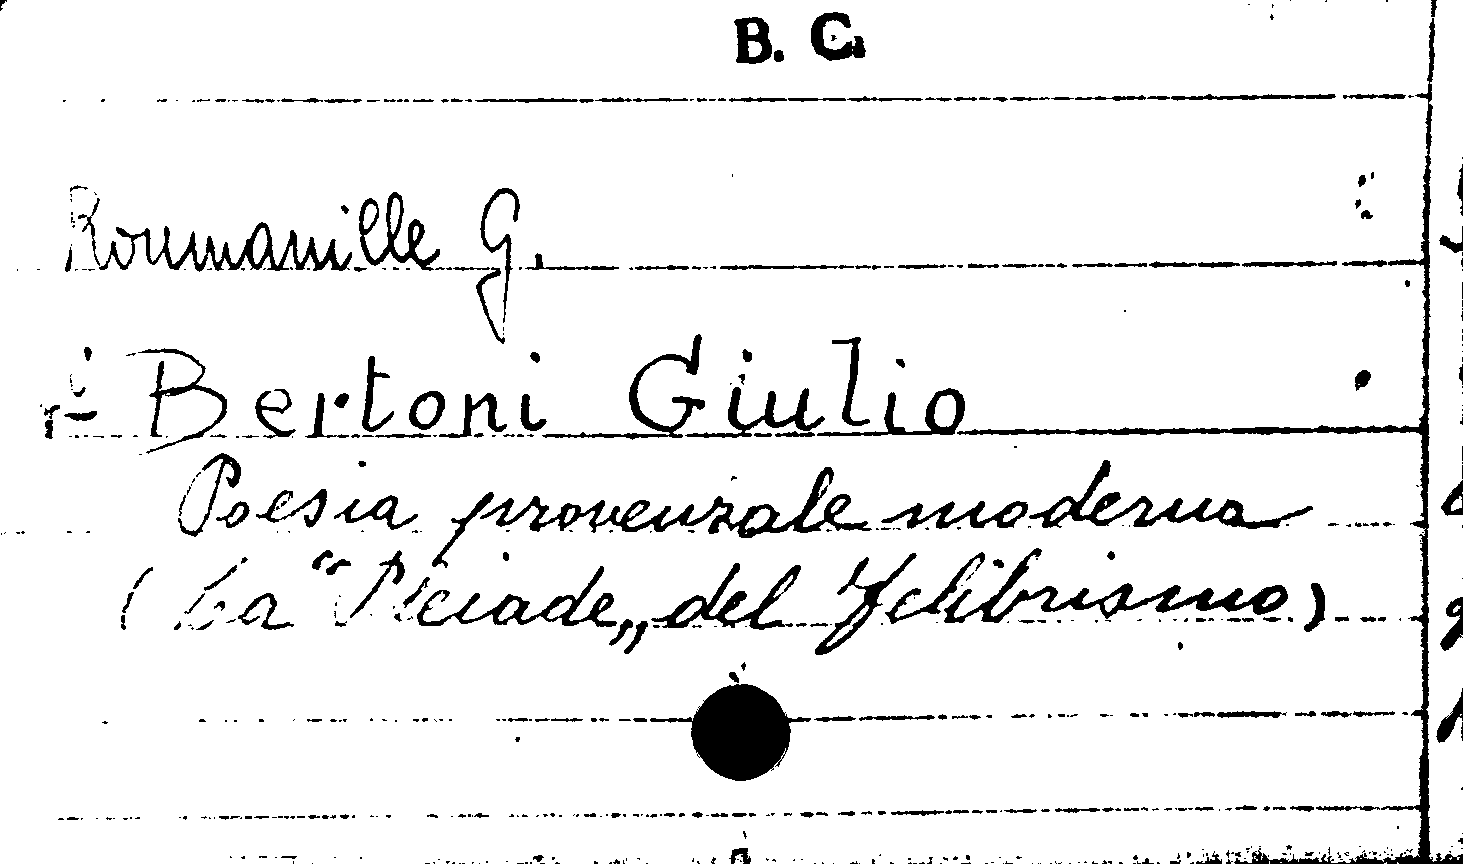 B. C.
Roumanille G.
Bertoni Giulio
Poesia provenzale moderna
( La "Pleiade„ del Felibrismo)